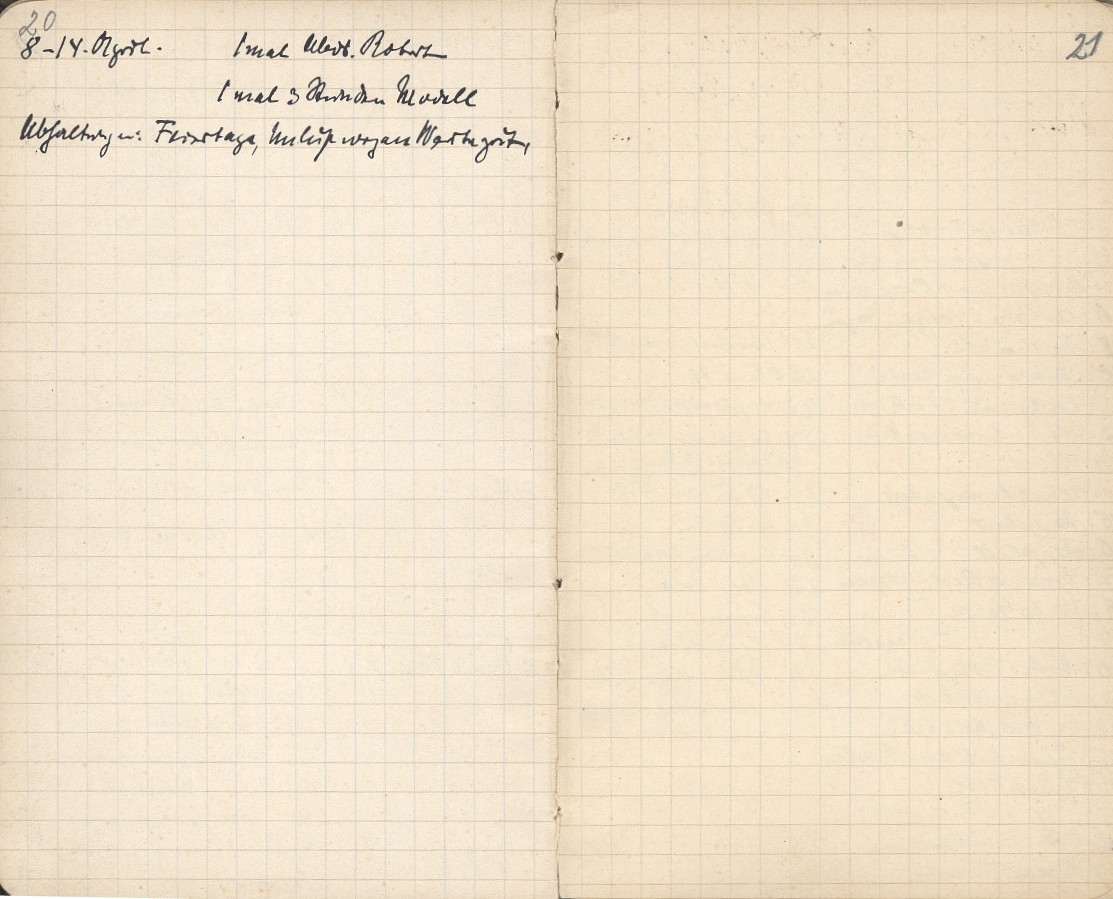 20
8-14. April. 1 mal Robert
1 mal 3 Stunden Modell
Abhaltungen: Feiertage, wegen
21